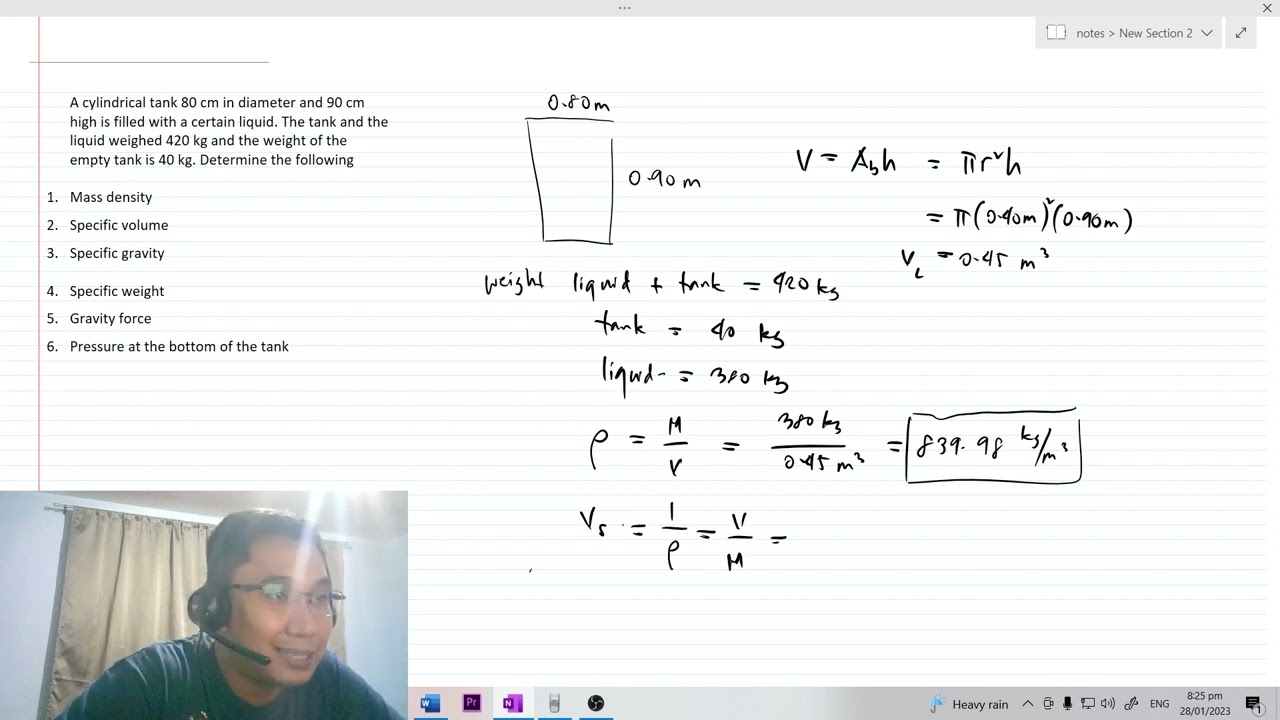 notes > New Section 2
A cylindrical tank 80 cm in diameter and 90 cm
high is filled with a certain liquid. The tank and the
liquid weighed 420 kg and the weight of the
empty tank is 40 kg. Determine the following
1. Mass density
2. Specific volume
3. Specific gravity
4. Specific weight
5. Gravity force
6. Pressure at the bottom of the tank
0.80m
0.90 m
V = A_b h = πr²h
= π(0.40m)²(0.90m)
V_L = 0.45 m³
weight liquid + tank = 420 kg
tank = 40 kg
liquid = 380 kg
ρ = M/V = 380 kg/0.45 m³ = 839.98 kg/m³
V_s = 1/ρ = V/M =
Heavy rain
ENG
8:25 pm
28/01/2023
1